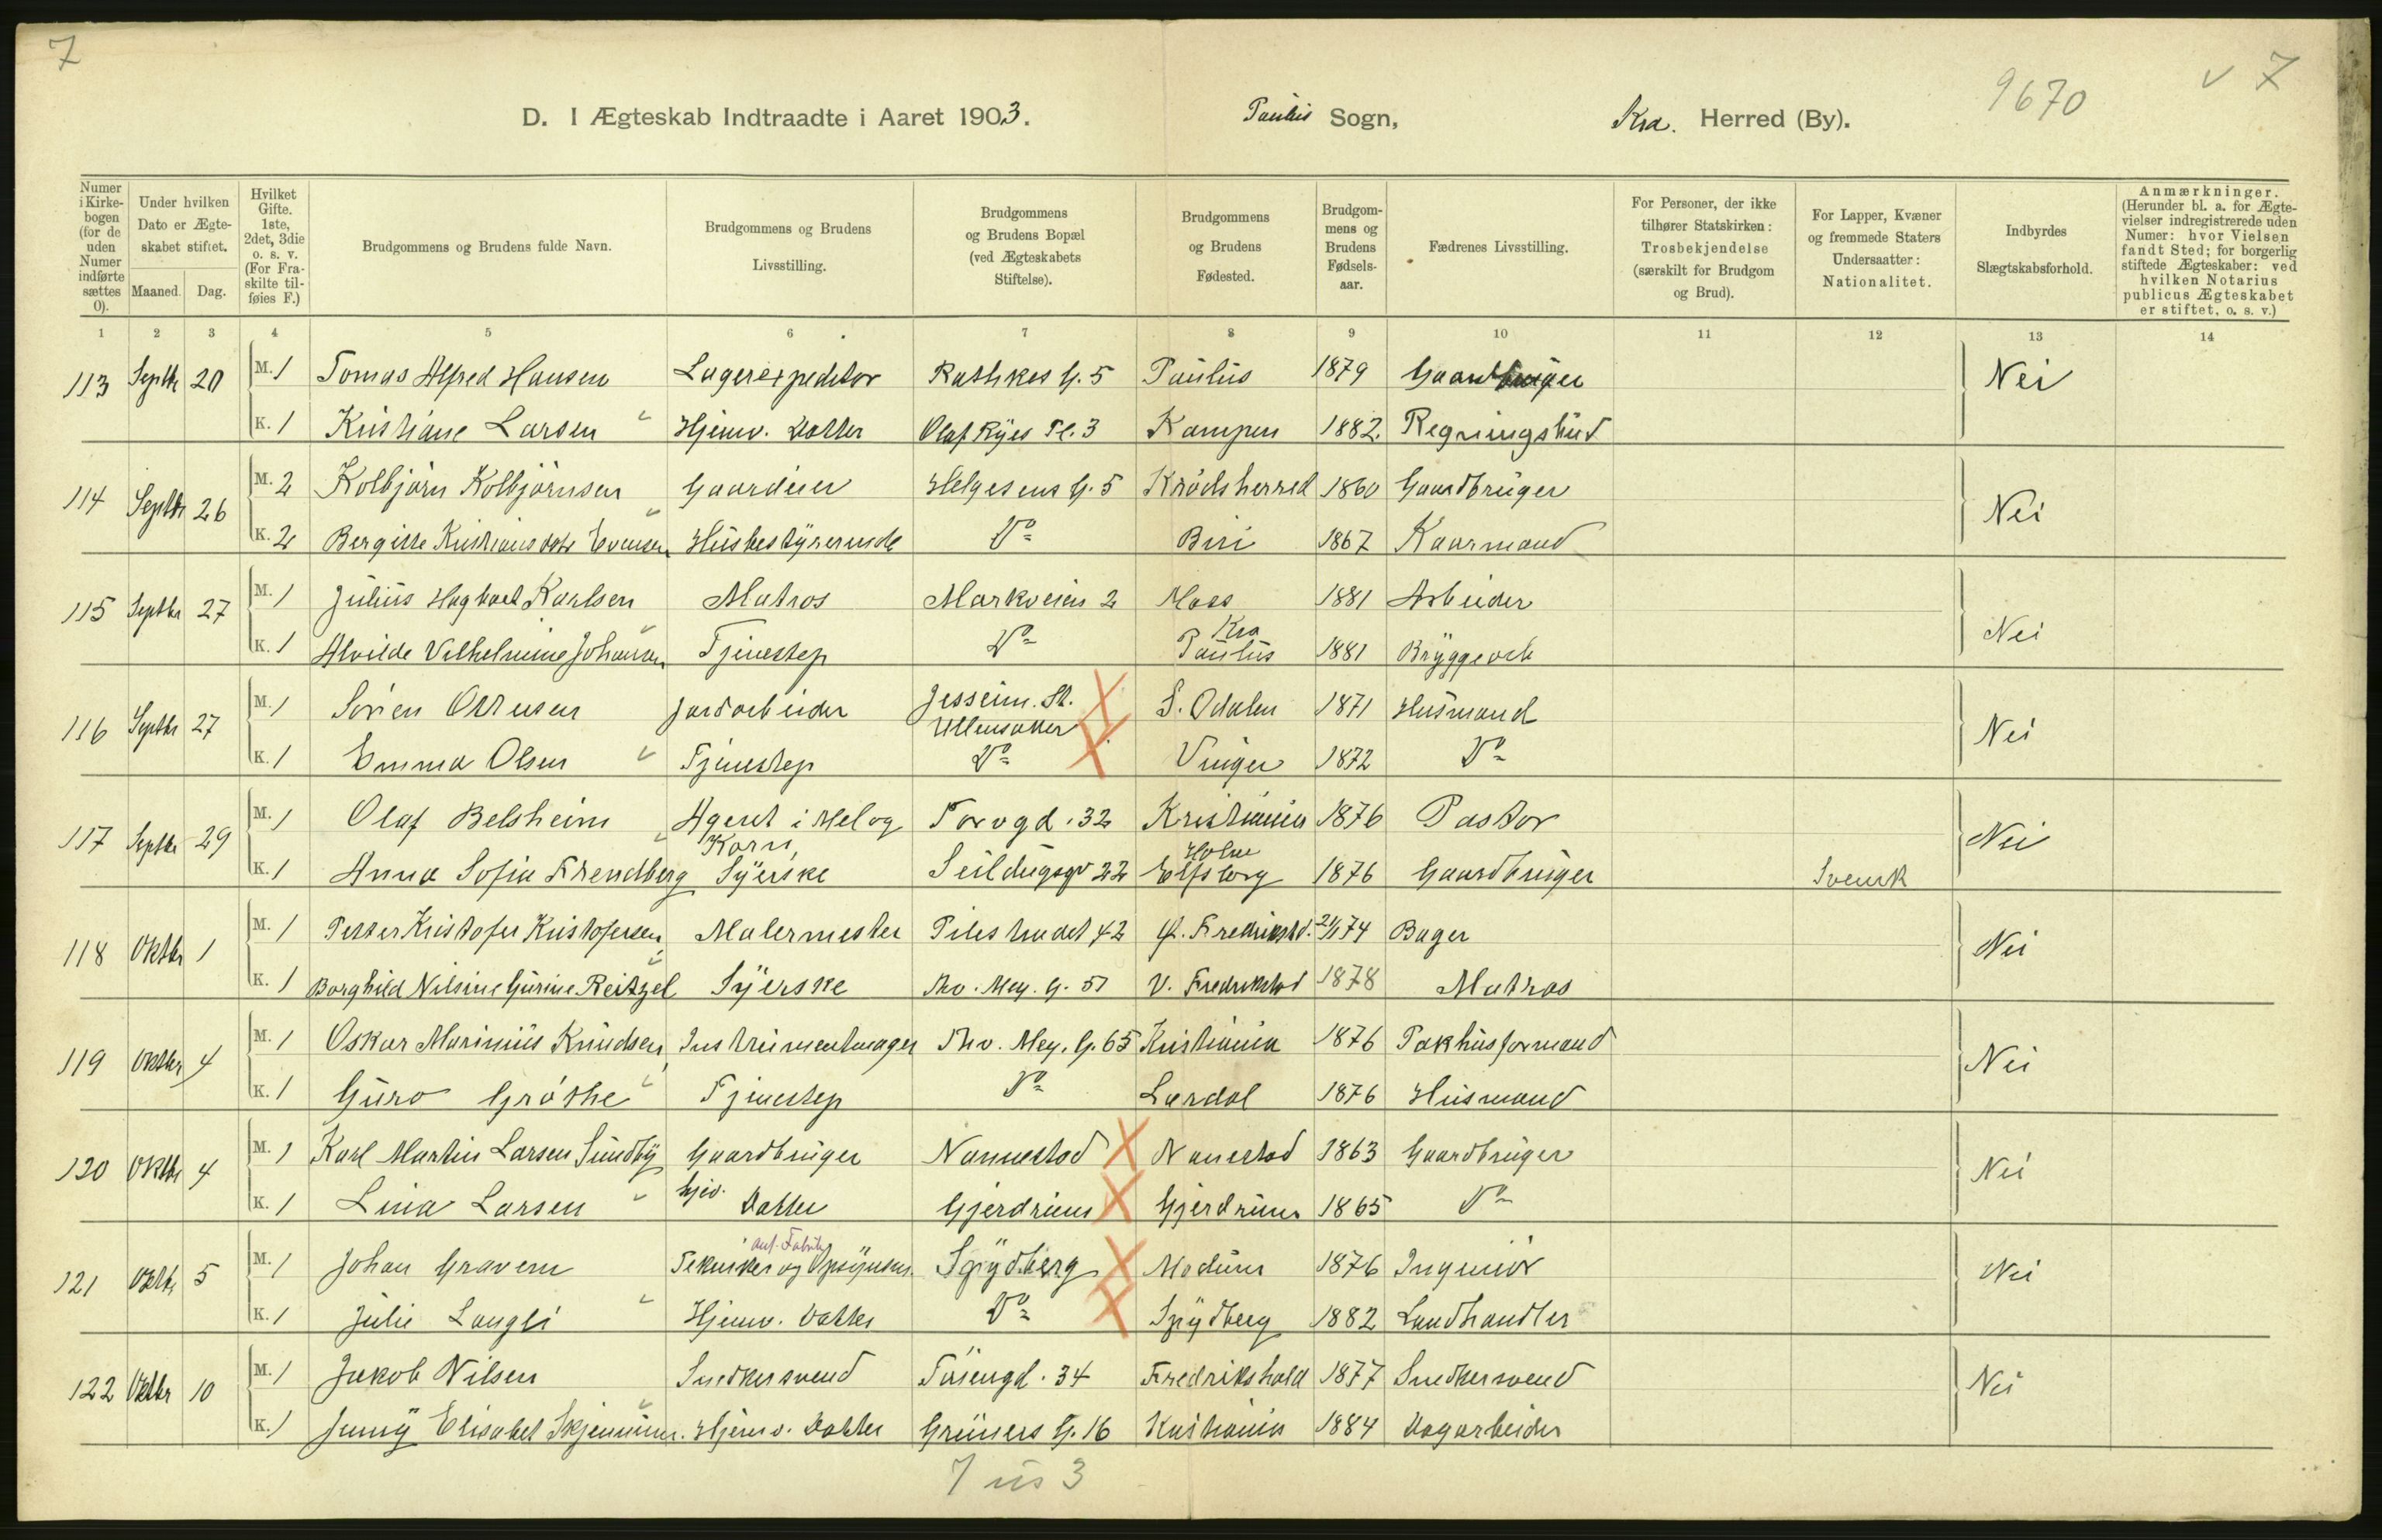 7
9670
v 7
D. I Ægteskab Indtraadte i Aaret 1903. Paulus Sogn, Kra. Herred (By).
Numer i Kirkebogen (for de uden Numer indførte sættes 0).
Under hvilken Dato er Ægteskabet stiftet.
Maaned. Dag.
Hvilket Gifte. 1ste, 2det, 3die o. s. v. (For Fraskilte tilføies F.)
Brudgommens og Brudens fulde Navn.
Brudgommens og Brudens Livsstilling.
Brudgommens og Brudens Bopæl (ved Ægteskabets Stiftelse).
Brudgommens og Brudens Fødested.
Brudgommens og Brudens Fødselsaar.
Fædrenes Livsstilling.
For Personer, der ikke tilhører Statskirken: Trosbekjendelse (særskilt for Brudgom og Brud).
For Lapper, Kvæner og fremmede Staters Undersaatter: Nationalitet.
Indbyrdes Slægtskabsforhold.
Anmærkninger. (Herunder bl. a. for Ægtevielser indregistrerede uden Numer: hvor Vielsen fandt Sted; for borgerlig stiftede Ægteskaber: ved hvilken Notarius publicus Ægteskabet er stiftet, o. s. v.)
1 2 3 4 5 6 7 8 9 10 11 12 13 14
113 Septbr 20 M. 1 Tomas Alfred Hansen Lagerexpeditør Rathkes G. 5 Paulus 1879 Gaardbruger Nei
K. 1 Kristiane Larsen Hjemv. Datter Olaf Ryes Pl. 3 Kampen 1882. Regningsbud
114 Septbr 26 M. 2 Kolbjørn Kolbjørnsen Gaardeier Helgesens G. 5 Krødsherred 1860 Gaardbruger Nei
K. 2 Bergitte Kristiansdatr Evensen Husbestyrerinde Do Biri 1867 Kaarmand
115 Septbr 27 M. 1 Julius Hagbart Karlsen Matros Markveien 2 Moss 1881 Arbeider Nei
K. 1 Alvilde Vilhelmine Johansen Tjenestep Do Kra Paulus 1881 Bryggearb
116 Septbr 27 M. 1 Søren Ottesen Jordarbeider Jesseim. St. Ullensaker S. Odalen 1871 Husmand Nei
K. 1 Emma Olsen Tjenestep Do Vinger 1872 Do
117 Septbr 29 M. 1 Olaf Belsheim Agent i Mel og Korn Torvgd. 32 Kristiania 1876 Pastor Nei
K. 1 Anna Sofia Frendberg Syerske Seildugsgd 22 Elfsborg 1876 Gaardbruger Svensk
118 Oktbr 1 M. 1 Petter Kristofer Kristofersen Malermester Pilestrædet 42 Gl. Fredrikstd. 21/1 74 Bager Nei
K. 1 Borghild Nilsine Gurine Reitzel Syerske Thv. Mey. G. 51 V. Fredrikstad 1878 Matros
119 Oktbr 4 M. 1 Oskar Marinius Knudsen Instrumentmager Thv. Mey. G. 65 Kristiania 1876 Pakhusformand Nei
K. 1 Guro Grøthe Tjenestep Do Lærdal 1876 Husmand
120 Oktbr 4 M. 1 Karl Martin Larsen Sundby Gaardbruger Nannestad Nanestad 1863 Gaardbruger Nei
K. 1 Lina Larsen Hjv. Datter Gjerdrum Gjerdrum 1865 Do
121 Oktbr 5 M. 1 Johan Gravem Tekniker og Spydberg Modum 1876 Ingeniør Nei
K. 1 Julie Langli Hjemv. Datter Do Spydberg 1882 Landhandler
122 Oktbr 10 M. 1 Jakob Nilsen Snedkersvend Tøiengd. 34 Fredrikshald 1877 Snedkersvend Nei
K. 1 Jenny Elisabet Skjennum. Hjemv. Datter Grüners G. 16 Kristiania 1884 Dagarbeider